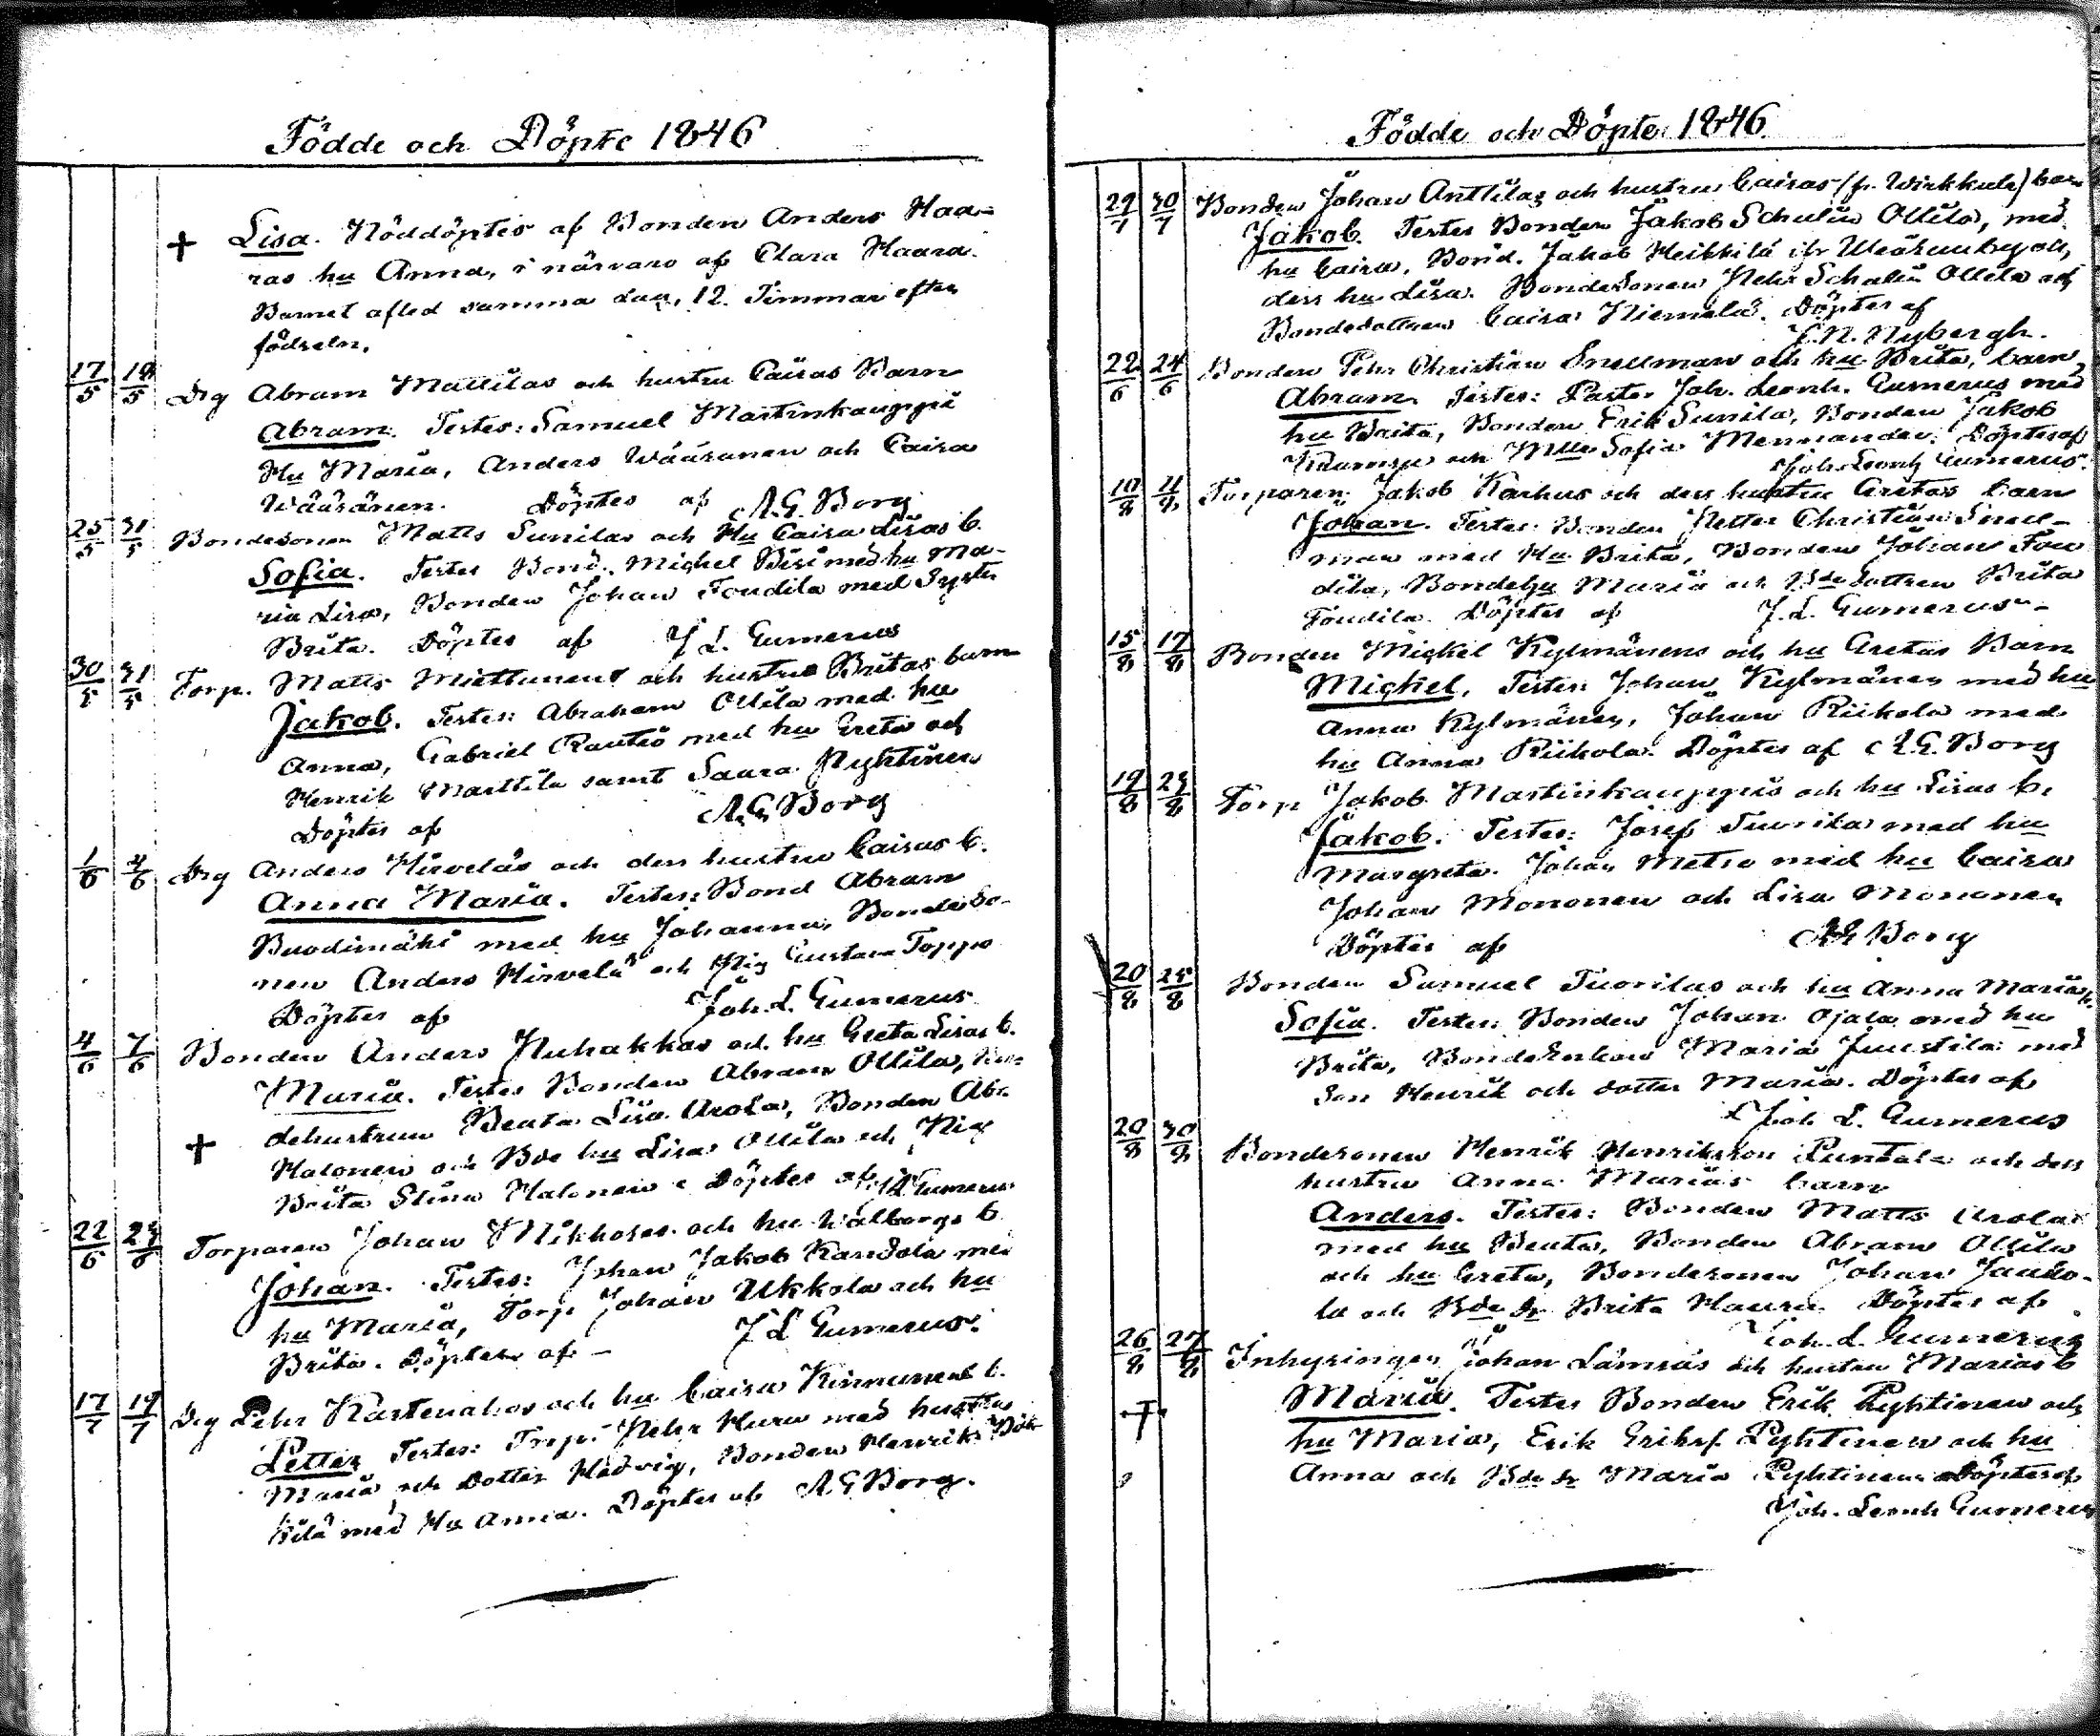 Födde och Döpte 1846
+ Lisa. Nöddöptes af Bonden Anders Haa-
ras hu Anna, i närvaro af Clara Haara.
Barnet afled samma dag, 12 Timmar efter
födseln.
17/5 19/5 Drg Abram Mattilas och hustru Caisas Barn
Abram. Testes: Samuel Martinkauppi
Hu Maria, Anders Wäisänen och Caisa
Wäisänen. Döptes af A.G. Borg
25/5 31/5 Bondesonen Matts Sunilas och Hu Caisa Lisas b.
Sofia. Testes Bond. Michel Pisi med hu Ma-
ria Lisa, Bonden Johan Foudila med Syster
Brita. Döptes af J L. Gumerus
30/5 31/5 Torp. Matts Miettunens och hustru Britas barn
Jakob. Testes: Abraham Ollila med hu
Anna, Gabriel Rautio med hu Greta och
Henrik Marttila samt Saara Pyhtinen
Döptes af A.G. Borg
1/6 2/6 Drg Anders Hirveläs och dess hustru Caisas b.
Anna Maria. Testes: Bond Abram
Buodimäki med hu Johanna, Bondeso-
nen Anders Hirvelä och Pig Gustava Toppo
Döptes af Joh. L. Gumerus
4/6 7/6 Bonden Anders Huhakkas och hu Greta Lisas b.
Maria. Testes Bonden Abram Ollila,
dehustrun Beata Lisa Arola, Bonden Abr.
+ Halonen och Bde hu Lisa Ollila och Pig
Brita Stina Halonen. Döptes af J L Gumerus
22/6 24/6 Torparen Johan Mikkoses och hu Walborgs b.
Johan. Testes: Johan Jakob Kandola med
hu Maria, Torp Johan Ukkola och hu
Brita. Döptes af - J L Gumerus.
17/7 19/7 Drg Pehr Kastenahos och hu Caisa Kinnunens b.
Petter Testes: Torp. Pehr Huru med hustru
Maria och Dotter Hedvig, Bonden Henrik
kilä med Hu Anna. Döptes af A G Borg.
Födde och Döpte 1846.
29/7 30/7 Bonden Johan Anttilas och hustru Caisas (fr. Wirkkula) barn
Jakob. Testes Bonden Jakob Schulin Ollila, med
hu Caisa, Bond. Jakob Heikkilä ifr
dess hu Lisa. Bondesonen Pehr Schulin Ollila och
Bondedottren Caisa Niemelä. Döptes af
C.N. Nybergh.
22/6 24/6 Bonden Pehr Christian Snellman och hu Brita, barn
Abram. Testes: Pastor Joh. Leonh. Gumerus med
hu Brita, Bonden Erik Sunila, Bonden Jakob
och Mlle Sofia Mennander. Döptes af
Joh. Leonh Gumerus.
10/8 11/8 Torparen Jakob Karhus och dess hustru Gretas barn
Johan. Testes: Bonden Petter Christian Snell-
man med Hu Brita, Bonden Johan Fou
dila, Bondehu Maria och Bde dottren Brita
Foudila. Döptes af J. L. Gumerus -
15/8 17/8 Bonden Michel Kylmänens och hu Gretas Barn
Michel. Testes: Johan Kylmänen med hu
Anna Kylmänen, Johan Riikola med
hu Anna Riikola. Döptes af A.G. Borg
19/8 23/8 Torp Jakob Martinkauppis och hu Lisas b.
Jakob. Testes: Josef Tuorila med hu
Margreta. Johan Metso med hu Caisa
Johan Mononen och Lisa Mononen
Döptes af AG Borg
20/8 25/8 Bonden Samuel Tuorilas och hu Anna Marias b.
Sofia. Testes: Bonden Johan Ojala med hu
Brita, Bondeenkan Maria Juustila med
Son Henrik och dotter Maria. Döptes af
Joh L. Gumerus
20/8 30/8 Bondesonen Henrik Henriksson Puntala och dess
hustru Anna Marias barn
Anders. Testes: Bonden Matts Arola
med hu Beata, Bonden Abram Ollila
och hu Greta, Bondesonen Johan Jaako-
la och Bde dr Brita Haara. Döptes af
Joh. L. Gumerus
26/8 27/8 Inhysingen Johan Lämsäs och hustru Marias b
+ Maria. Testes Bonden Erik Pyhtinen och
hu Maria, Erik Eriksf. Pyhtinen och hu
Anna och Bde dr Maria Pyhtinen. Döptes af
Joh. Leonh Gumerus